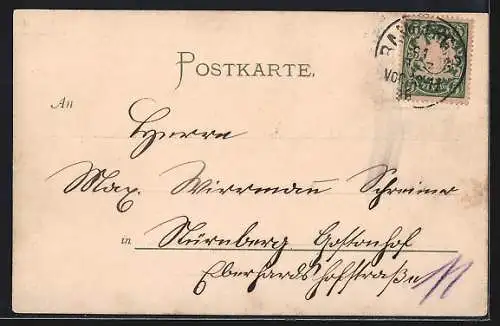 POSTKARTE.
An
Herrn
Max. Wirrmañ Schreiner
in Nürnberg. Gostenhof
Eberhardshofstraße 11